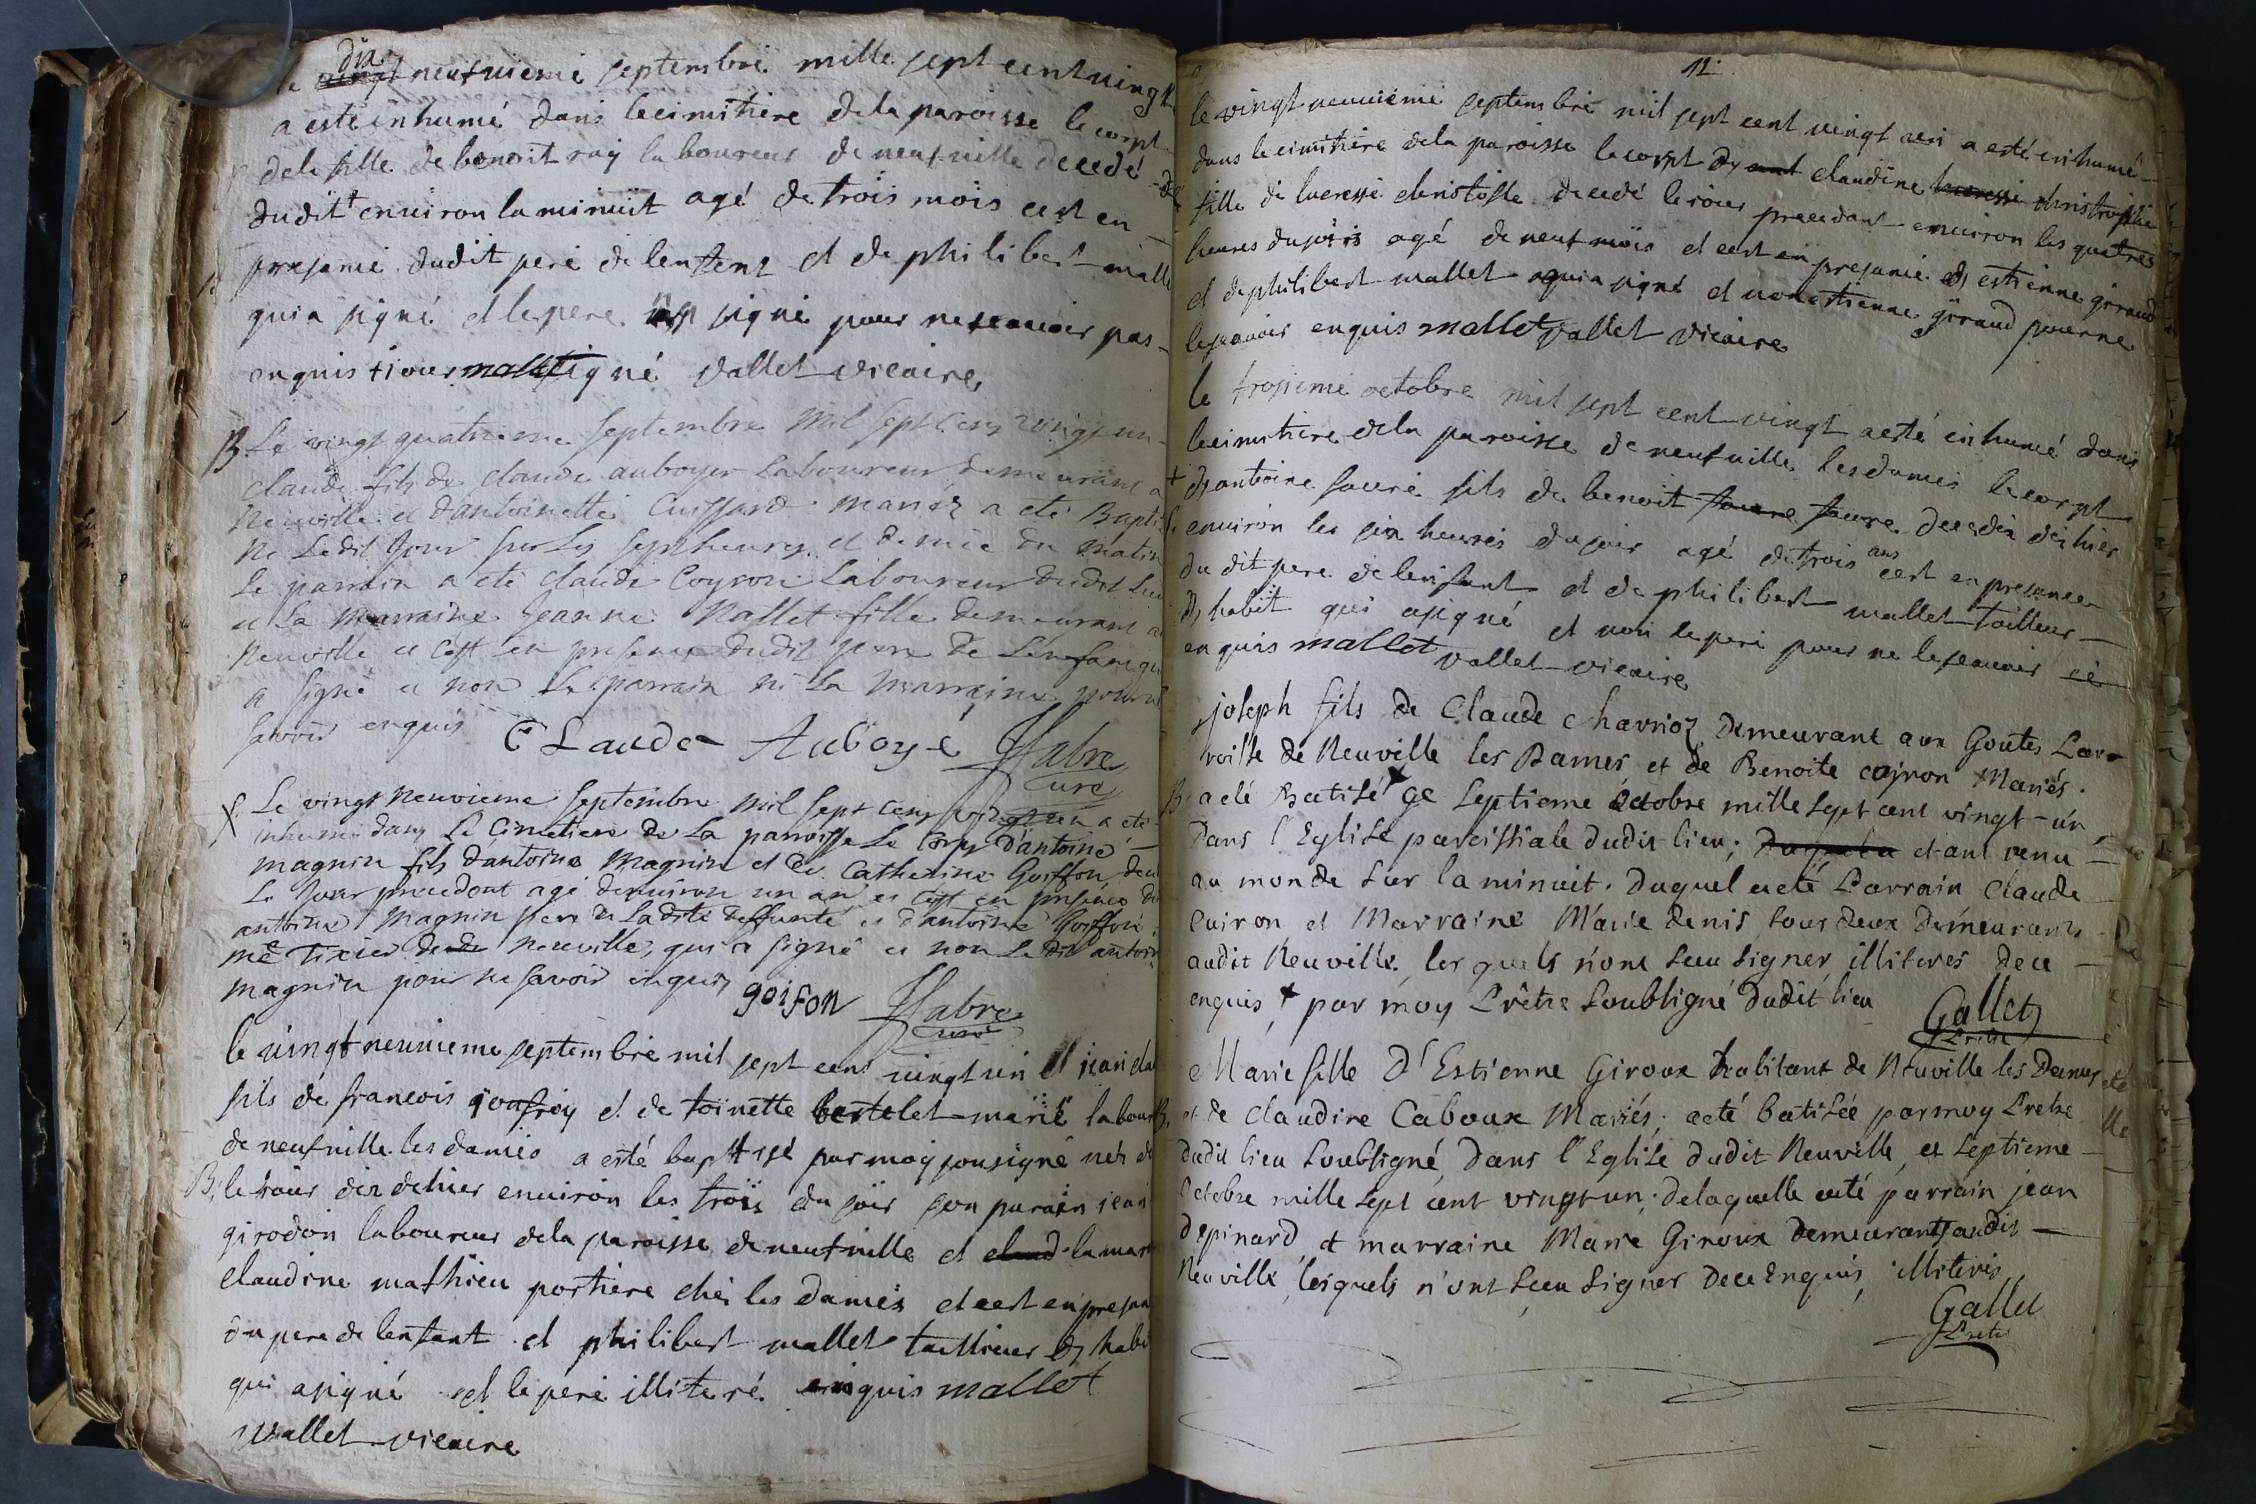 dix
le vingt neufuiemé septembre mille sept cent vingt
a esté inhumé dans le cimitiere de la paroisse le corpt
de la fille de benoit ray laboureur de neufuille decedé
dudit environ la minuit agé de trois mois cest en
presance dudit pere de lenfent et de philibert malle
qui a signé et le pere signé pour ne scauoir pas
enquis mallet signé vallet vicaire
B Le vingt quatrieme Septembre mil sept cens vingt un
claude fils de claude auboyer Laboureur demeurant a
Neuville et dantoinette Cuissard mariéz a eté Bapti
né Ledit Jour sur Les sept heures et demie du matin
Le parrain a eté claude Coyron Laboureur dudit lieu
et La marraine Jeanne Mallet fille demeurant a
Neuville et c'est en presence dudit pere de Lenfant qui
a signé et non Le parrain ni La marraine pour ne
savoir enquis Claude Auboye Fabre
curé
Le vingt neuvieme Septembre mil sept cens vingt un a eté
inhumé dans Le Cimetiere de La parroisse Le Corps d'antoine
magnin fils d'antoine Magnin et de Catherine Goiffon
Le jour precedent agé denviron un an et c'est en presence
antoine Magnin pere de La dite deffunte et d'antoine Goiffon
me Tixier de Neuville, qui a signé et non Le dit antoin
magnin pour ne savoir enquis goifon Fabre
curé
le vingt neuuieme septembre mil sept cent vingt un et jean cla
fils de francois goufroy et de toinette bertelet marié labour
de neufuille les dames a esté baptisé par moy sousigné nés
B le jour dier dehier enuiron les trois du soir son parain jean
girodon laboureur de la paroisse de neufuille et claud la mar
claudine mathieu portiere ches les dames et cest en presan
du pere de lenfant et philibert mallet tallieur d habi
qui a signé et le pere illiteré enquis mallet
vallet vicaire
11
le vingt neuuiemé septembre mil sept cent vingt un a esté inhumé
dans le cimitiere de la paroisse le corpt de claudine christophle
fille de lucresse christofle decedé le jour precedant enuiron les quatres
heures du soir agé de neuf mois et cest en presance de estienne giraud
et de philibert mallet qui a signé et non estienne giraud pour ne
le scauoir enquis mallet vallet vicaire
le trosiemé octobre mil sept cent vingt a esté inhumé dans
le cimitiere de la paroisse de neufuille les dames le corpt
+ d antoine faure fils de benoit faure faure decedés dehier
enuiron les six heures du soir agé de trois ans cest en presance
du dit pere de lenfant et de philibert mallet tailleur
d habit qui a signé et non le pere pour ne le scauoir
enquis mallet vallet vicaire
joseph fils de Claude Charrioz Demeurant aux Goutes Par
roisse de Neuville les Dames et de Benoite coyron Mariés
B a eté Batisé + ce septieme octobre mille sept cent vingt-un
Dans l'Eglise paroissiale dudit lieu; etant venu
au monde sur la minuit. Duquel a eté Parrain Claude
Cuiron et Marraine Marie denis tous deux demeurants
audit Neuville lesquels n'ont sceu signer, illiteres de ce
enquis + par moy Prêtre soubsigné dudit lieu Gallet
Pretre
Marie fille D'Estienne Giroux habitant de Neuville les Dames
B et de Claudine Caboux Mariés, a eté batisée par moy Pretre
dudit lieu soubsigné, dans l'Eglise dudit Neuville, et septieme
octobre mille sept cent vingt-un; de laquelle a eté parrain jean
Depinard et marraine Marie Giroux demeurants audit
Neuville, lesquels n'ont sceu signer de ce Enquis, illiteres
Gallet
Pretre